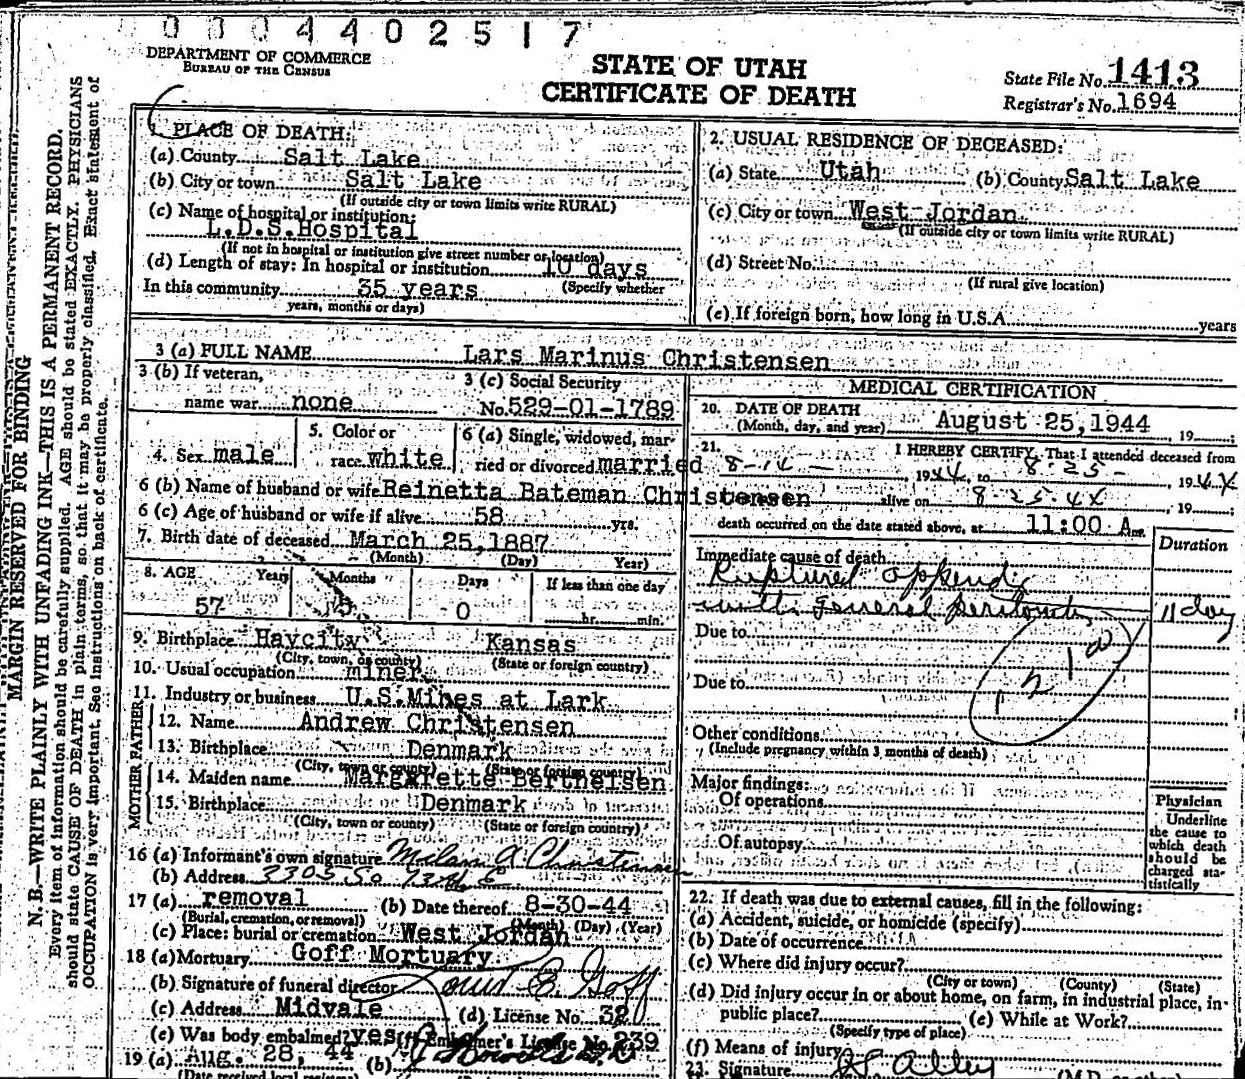 0 0 0 4 4 0 2 5 1 7
DEPARTMENT OF COMMERCE
BUREAU OF THE CENSUS
STATE OF UTAH
CERTIFICATE OF DEATH
State File No. 1413
Registrar's No. 1694
MARGIN RESERVED FOR BINDING
N. B.—WRITE PLAINLY WITH UNFADING INK—THIS IS A PERMANENT RECORD.
Every item of information should be carefully supplied. AGE should be stated EXACTLY. PHYSICIANS
should state CAUSE OF DEATH in plain terms, so that it may be properly classified. Exact statement of
OCCUPATION is very important. See instructions on back of certificate.
1. PLACE OF DEATH:
(a) County Salt Lake
(b) City or town Salt Lake
(If outside city or town limits write RURAL)
(c) Name of hospital or institution:
L.D.S.Hospital
(If not in hospital or institution give street number or location)
(d) Length of stay: In hospital or institution 10 days
In this community 35 years (Specify whether
years, months or days)
2. USUAL RESIDENCE OF DECEASED:
(a) State Utah (b) County Salt Lake
(c) City or town West Jordan
(If outside city or town limits write RURAL)
(d) Street No.
(If rural give location)
(e) If foreign born, how long in U.S.A. years
3 (a) FULL NAME Lars Marinus Christensen
3 (b) If veteran,
name war none
3 (c) Social Security
No. 529-01-1789
4. Sex male
5. Color or
race white
6 (a) Single, widowed, mar-
ried or divorced married
6 (b) Name of husband or wife Reinetta Bateman Christensen
6 (c) Age of husband or wife if alive 58 yrs.
7. Birth date of deceased March 25,1887
(Month) (Day) Year)
8. AGE Years Months Days If less than one day
57 5 0 hr. min.
9. Birthplace Haycity Kansas
(City, town, or county) (State or foreign country)
10. Usual occupation miner
11. Industry or business U.S.Mines at Lark
FATHER
12. Name Andrew Christensen
13. Birthplace Denmark
(City, town or county) (State or foreign country)
MOTHER
14. Maiden name Margarette Berthelsen
15. Birthplace Denmark
(City, town or county) (State or foreign country)
16 (a) Informant's own signature A Christensen
(b) Address 3305 So 13th E
17 (a) removal (b) Date thereof 8-30-44
(Burial, cremation, or removal) (Month) (Day) (Year)
(c) Place: burial or cremation West Jordan
18 (a) Mortuary Goff Mortuary
(b) Signature of funeral director E. Goff
(c) Address Midvale (d) License No. 320
(e) Was body embalmed? yes (f) Embalmer's License No. 239
19 (a) Aug. 28, 44 (b)
(Date received local registrar)
MEDICAL CERTIFICATION
20. DATE OF DEATH
(Month, day, and year) August 25,1944, 19
21. I HEREBY CERTIFY, That I attended deceased from
8-14-, 1944, to 8-25-, 1944
alive on 8-25-44, 19;
death occurred on the date stated above, at 11:00 A m.
Duration
Immediate cause of death
Ruptured appendix
with general peritonitis 11 day
Due to
Due to
121a
Other conditions
(Include pregnancy within 3 months of death)
Major findings:
Of operations
Of autopsy
Physician
Underline
the cause to
which death
should be
charged sta-
tistically
22. If death was due to external causes, fill in the following:
(a) Accident, suicide, or homicide (specify)
(b) Date of occurrence
(c) Where did injury occur?
(City or town) (County) (State)
(d) Did injury occur in or about home, on farm, in industrial place, in-
public place? (e) While at Work?
(Specify type of place)
(f) Means of injury
23. Signature Alley (M.D. or other)